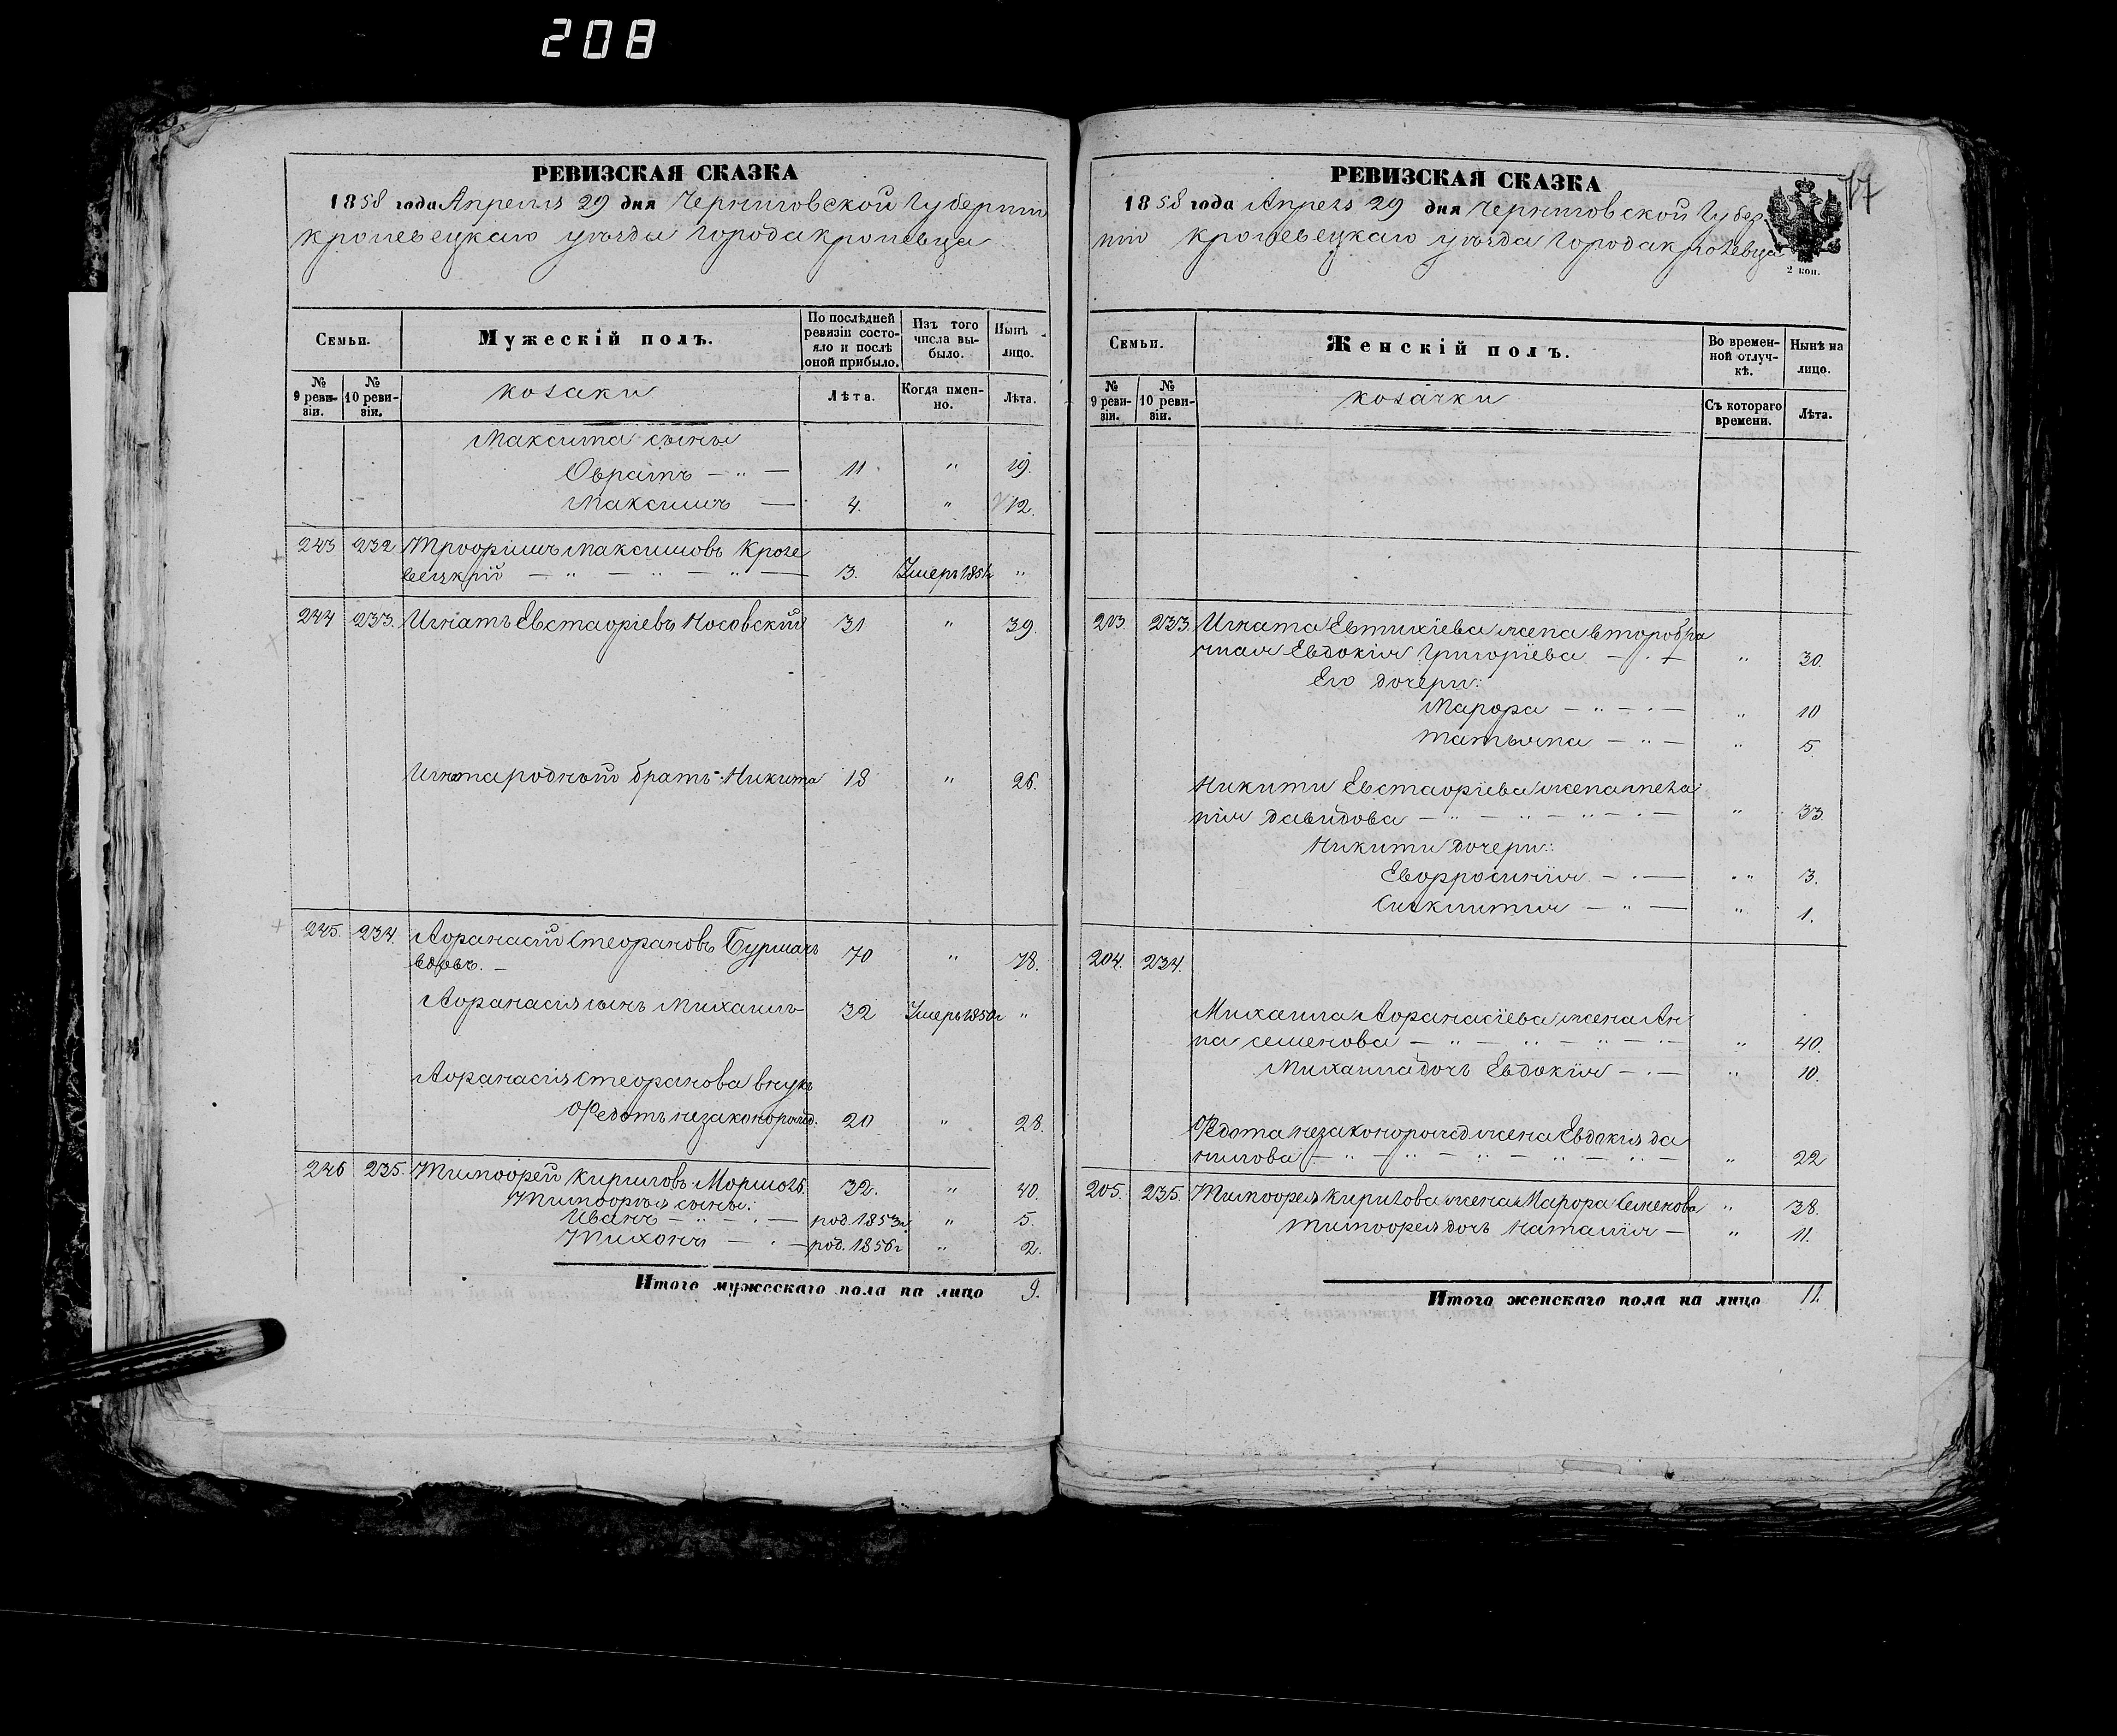 208
РЕВИЗСКАЯ СКАЗКА
1858 года Апреля 29 дня Черниговской Губернии
Кролевецкаго уѣзда города Кролевца
Семьи.
Мужескій полъ.
По послѣдней ревизіи состояло и послѣ оной прибыло.
Изъ того числа выбыло.
Нынѣ лицо.
№ 9 ревизіи.
№ 10 ревизіи.
козаки
Лѣта.
Когда именно.
Лѣта.
Максима сыны
— " — 11 " 19.
Максимъ — 4. " 12.
243 232 Трофимъ Максимовъ Кроле
вецкій — " — " — " — 3. Умеръ 1851г "
244 233. Игнатъ Евстафіевъ Носовскій 31 " 39.
Игната родный братъ: Никита 18 " 26.
245. 234. Афанасій Стефановъ
вдовъ. — 70 " 78.
Афанасія сынъ Михаилъ 32 Умеръ 1850г "
Афанасія Стефанова внукъ
Федотъ незаконорожд. 20 " 28.
246 235. Тимофей Кириловъ 32. " 40.
Тимофея сыны:
Иванъ — " — род. 1853г " 5.
Тихонъ — " — род. 1856г " 2.
Итого мужескаго пола на лицо 9.
РЕВИЗСКАЯ СКАЗКА
77
1858 года Апреля 29 дня Черниговской Губер
ніи Кролевецкаго уѣзда города Кролевца
2 коп.
Семьи.
Женскій полъ.
Во временной отлучкѣ.
Нынѣ на лицо.
№ 9 ревизіи.
№ 10 ревизіи.
козачки
Съ котораго времени.
Лѣта.
203. 233. Игната Евтихіева жена второбра
чная Евдокія Григоріева — " — " 30.
Его дочери:
Марфа — " — " — " 10
Татьяна — " — " 5
Никиты Евстафіева жена Мела
нія Давидова — " — " — " — " 33.
Никиты дочери:
Евфросинія — " — " 3.
— " — " 1.
204. 234.
Михаила Афанасіева жена Ан
на Семенова — " — " — " — " 40.
Михаила дочь Евдокія — " — " 10.
Федота незаконорожд жена Евдокія Да
нилова — " — " — " — " — " 22
205. 235. Тимофея Кирилова жена Марфа Семенова " 38.
Тимофея дочь Наталія — " 11.
Итого женскаго пола на лицо 11.